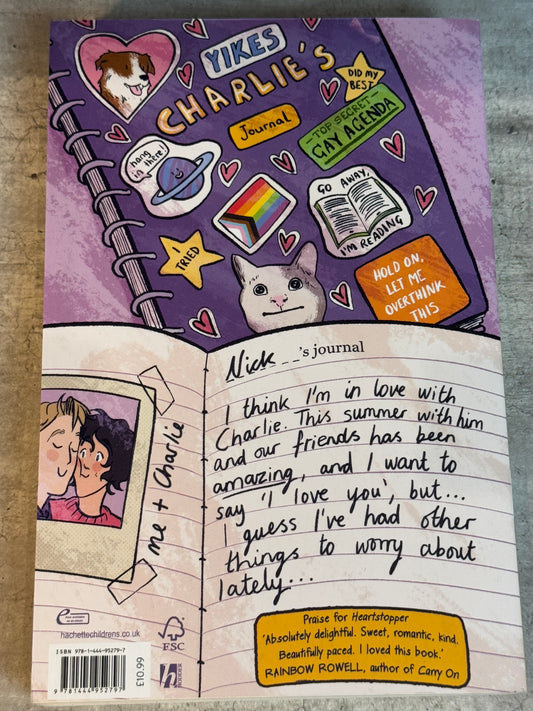 YIKES
CHARLIE'S
Journal
DID MY
BEST
TOP SECRET
GAY AGENDA
hang
in there!
GO AWAY,
I'M READING
I
TRIED
HOLD ON,
LET ME
OVERTHINK
THIS
Nick 's journal
I think I'm in love with
Charlie. This summer with him
and our friends has been
amazing, and I want to
say 'I love you', but...
I guess I've had other
things to worry about
lately...
me + Charlie
hachettechildrens.co.uk
FSC
ISBN 978-1-444-95279-7
9 781444 952797
£10.99
h
Praise for Heartstopper
'Absolutely delightful. Sweet, romantic, kind.
Beautifully paced. I loved this book.'
RAINBOW ROWELL, author of Carry On